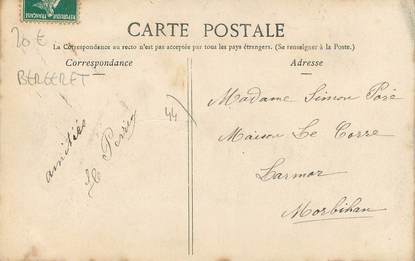 RÉPUBLIQUE FRANÇAISE
CARTE POSTALE
La Correspondance au recto n'est pas acceptée par tous les pays étrangers. (Se renseigner à la Poste.)
Correspondance
Adresse
20 €
BERGERET
44
amitiés
Madame Simon
Maison Le Corre
Larmor
Morbihan